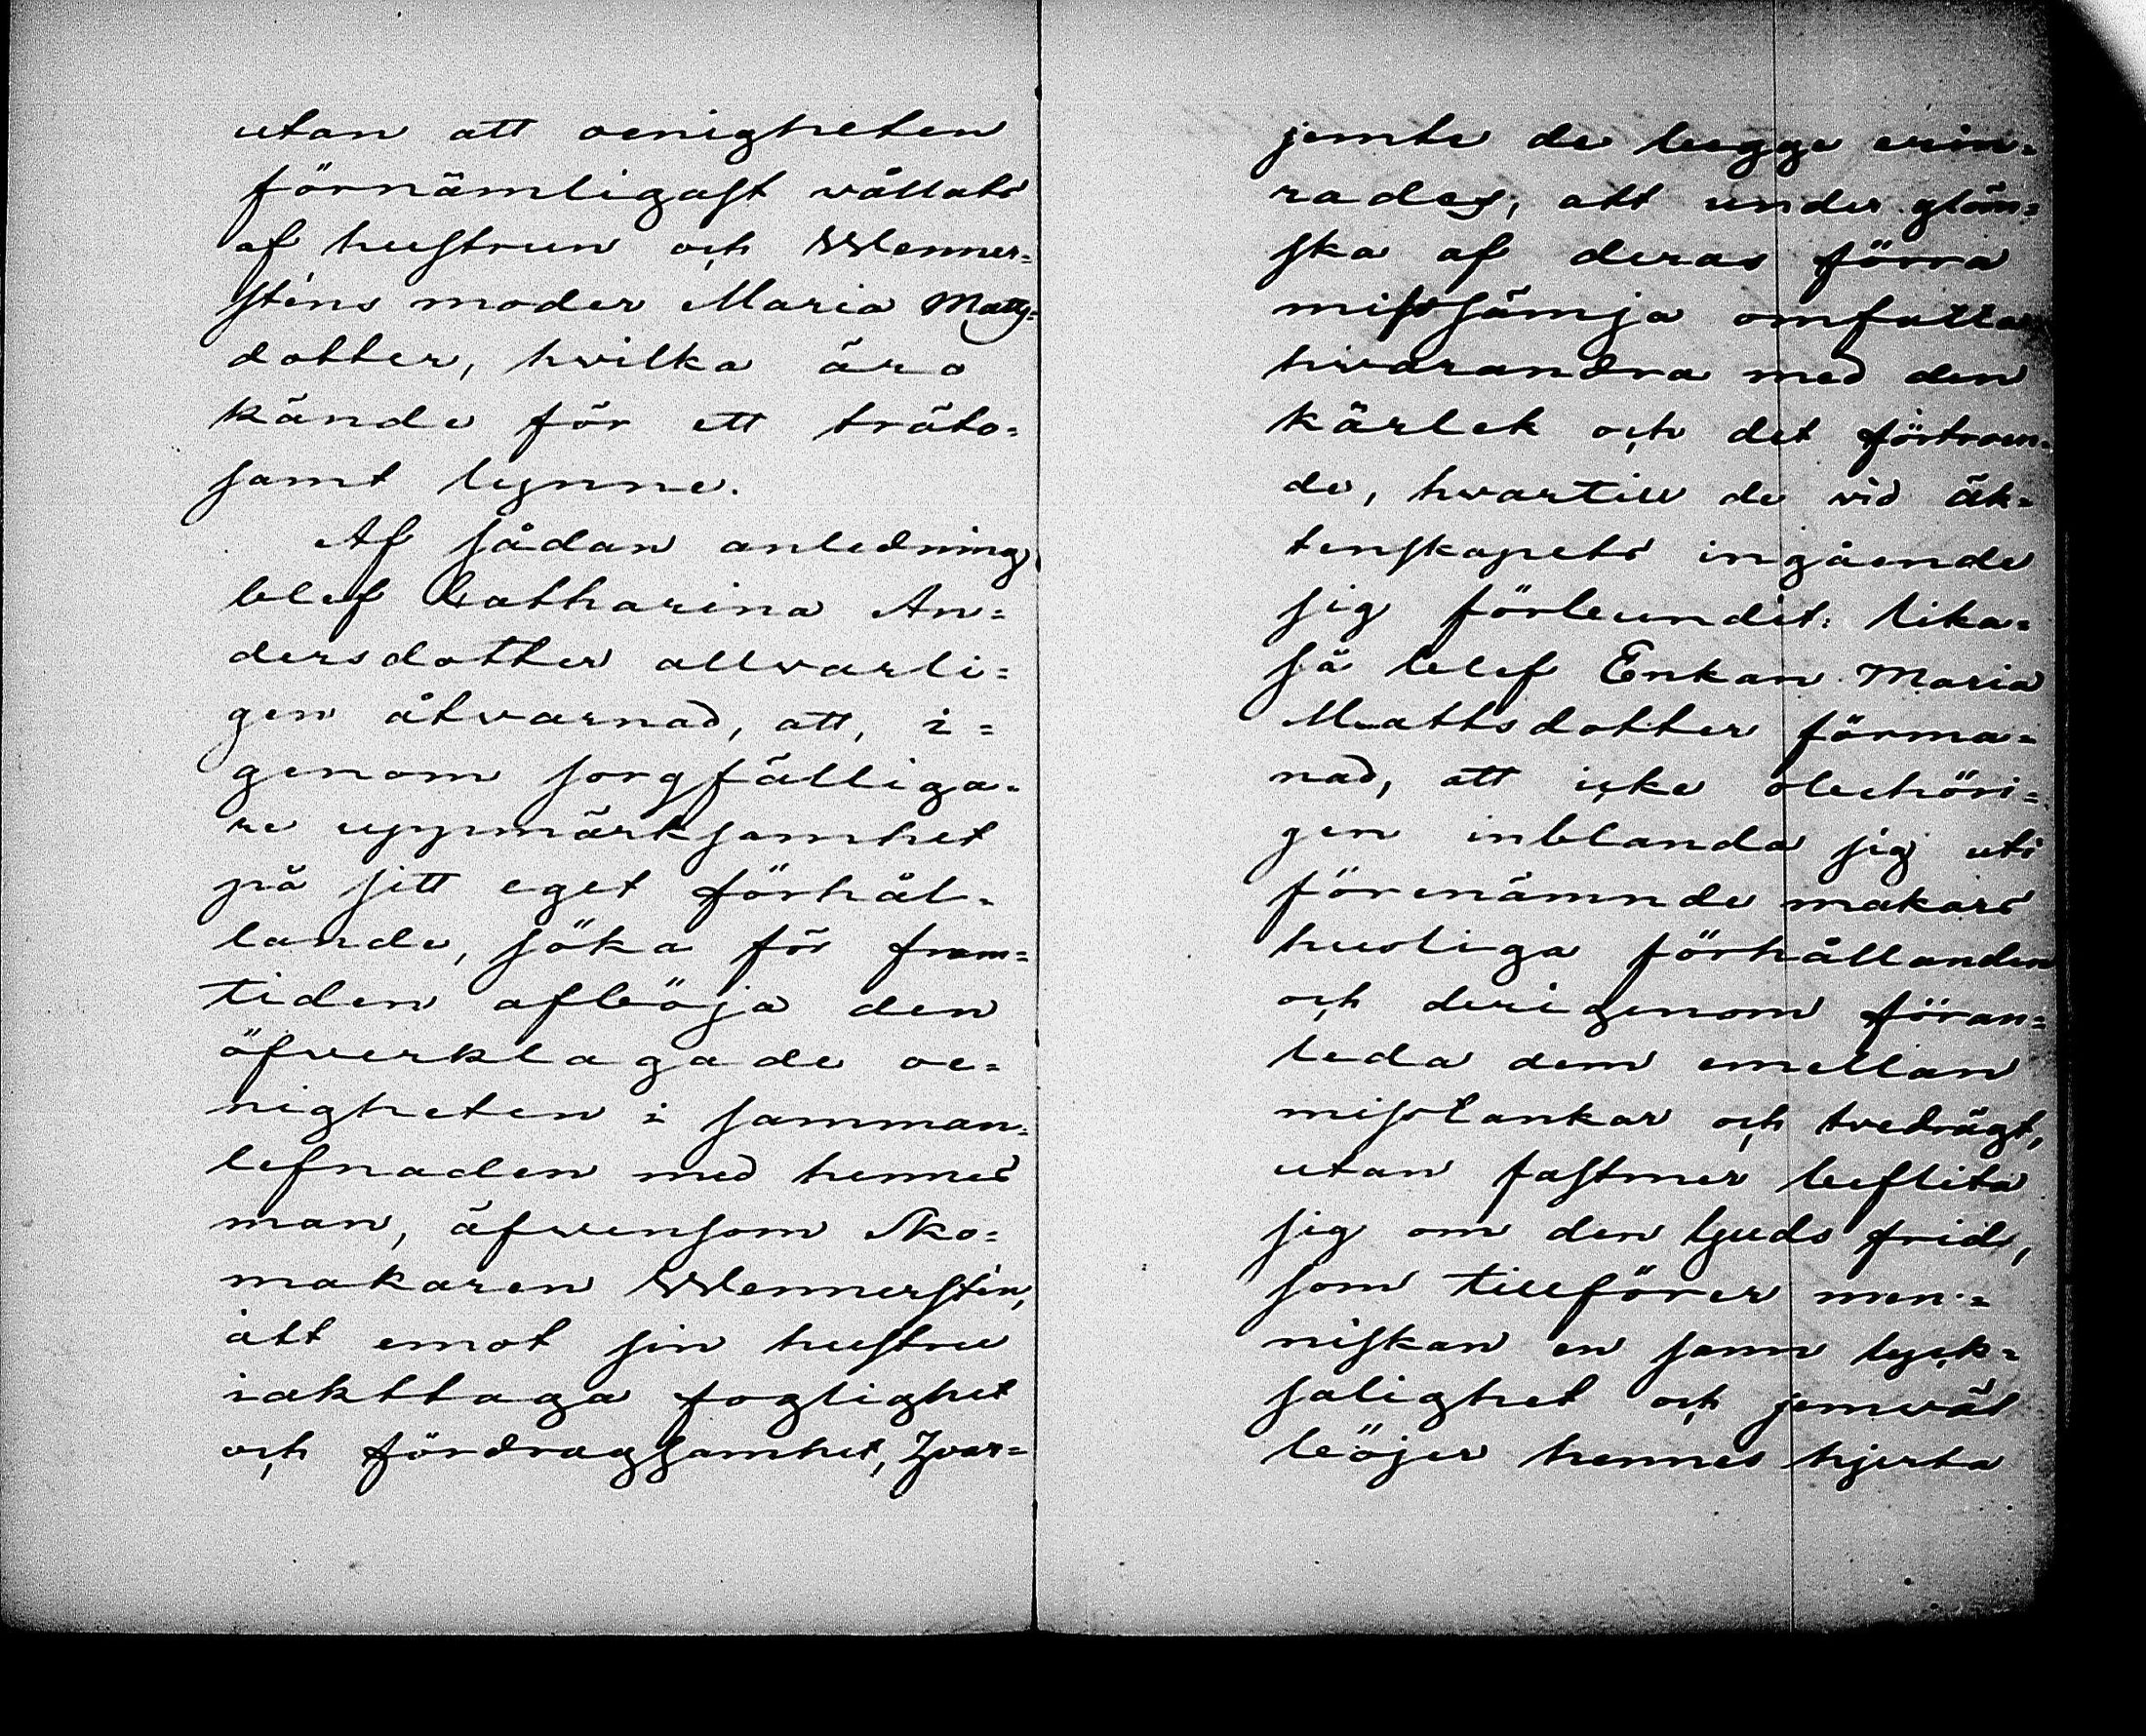 utan att oenigheten
förnämligast vållats
af hustrun och Wenner=
sténs moder Maria Matts=
dotter, hvilka äro
kände för ett träto=
samt lynne.
Af sådan anledning
blef Catharina An=
dersdotter allvarli=
gen åtvarnad, att, i=
genom sorgfälliga=
re uppmärksamhet
på sitt eget förhål=
lande, söka för fram=
tiden afböja den
öfverklagade oe=
nigheten i samman=
lefnaden med hennes
man, äfvensom Sko=
makaren Wennerstén,
att emot sin hustru
iakttaga foglighet
och fördragsamhet, hvar=
jemte de begge erin=
rades, att under glöm=
ska af deras förra
missämja omfatta
hvarandra med den
kärlek och det förtroen=
de, hvartill de vid äk=
tenskapets ingående
sig förbundit: lika=
så blef Enkan Maria
Matthsdotter förma=
nad, att icke obehöri=
gen inblanda sig uti
förenämnde makars
husliga förhållanden
och derigenom föran=
leda dem emellan
misstankar och tvedrägt,
utan fastmer beflita
sig om den Guds frid,
som tillförer men=
niskan en sann lyck=
salighet och jemväl
böjer hennes hjerta